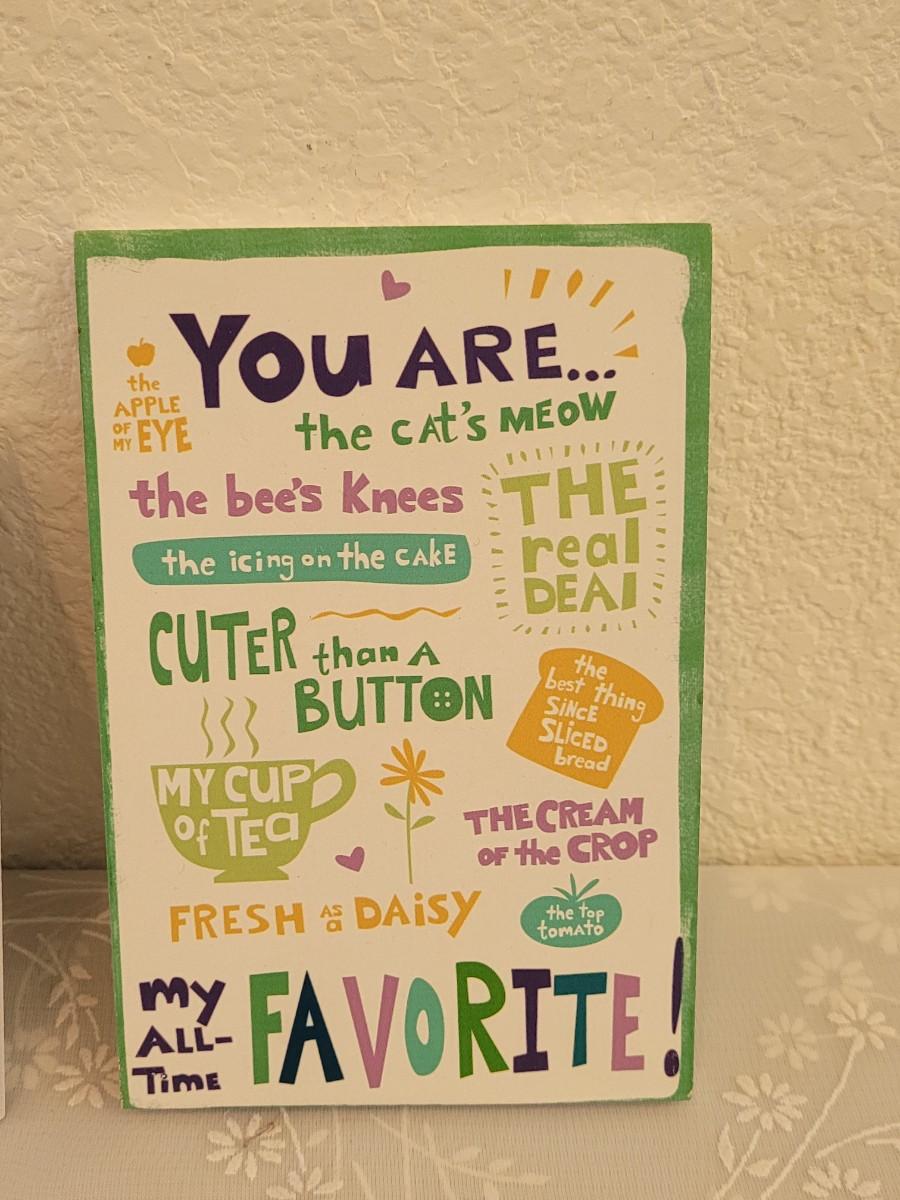 You ARE...
the
APPLE
OF
MY EYE
the CAT'S MEOW
the bee's Knees
THE
real
DEAl
the icing on the CAKE
CUTER than A
BUTTON
the
best thing
SiNCE
SLiCED
bread
MY CUP
of TEa
THE CREAM
OF the CROP
FRESH AS a DAiSY
the top
tomato
my
ALL-
Time
FAVORITE!